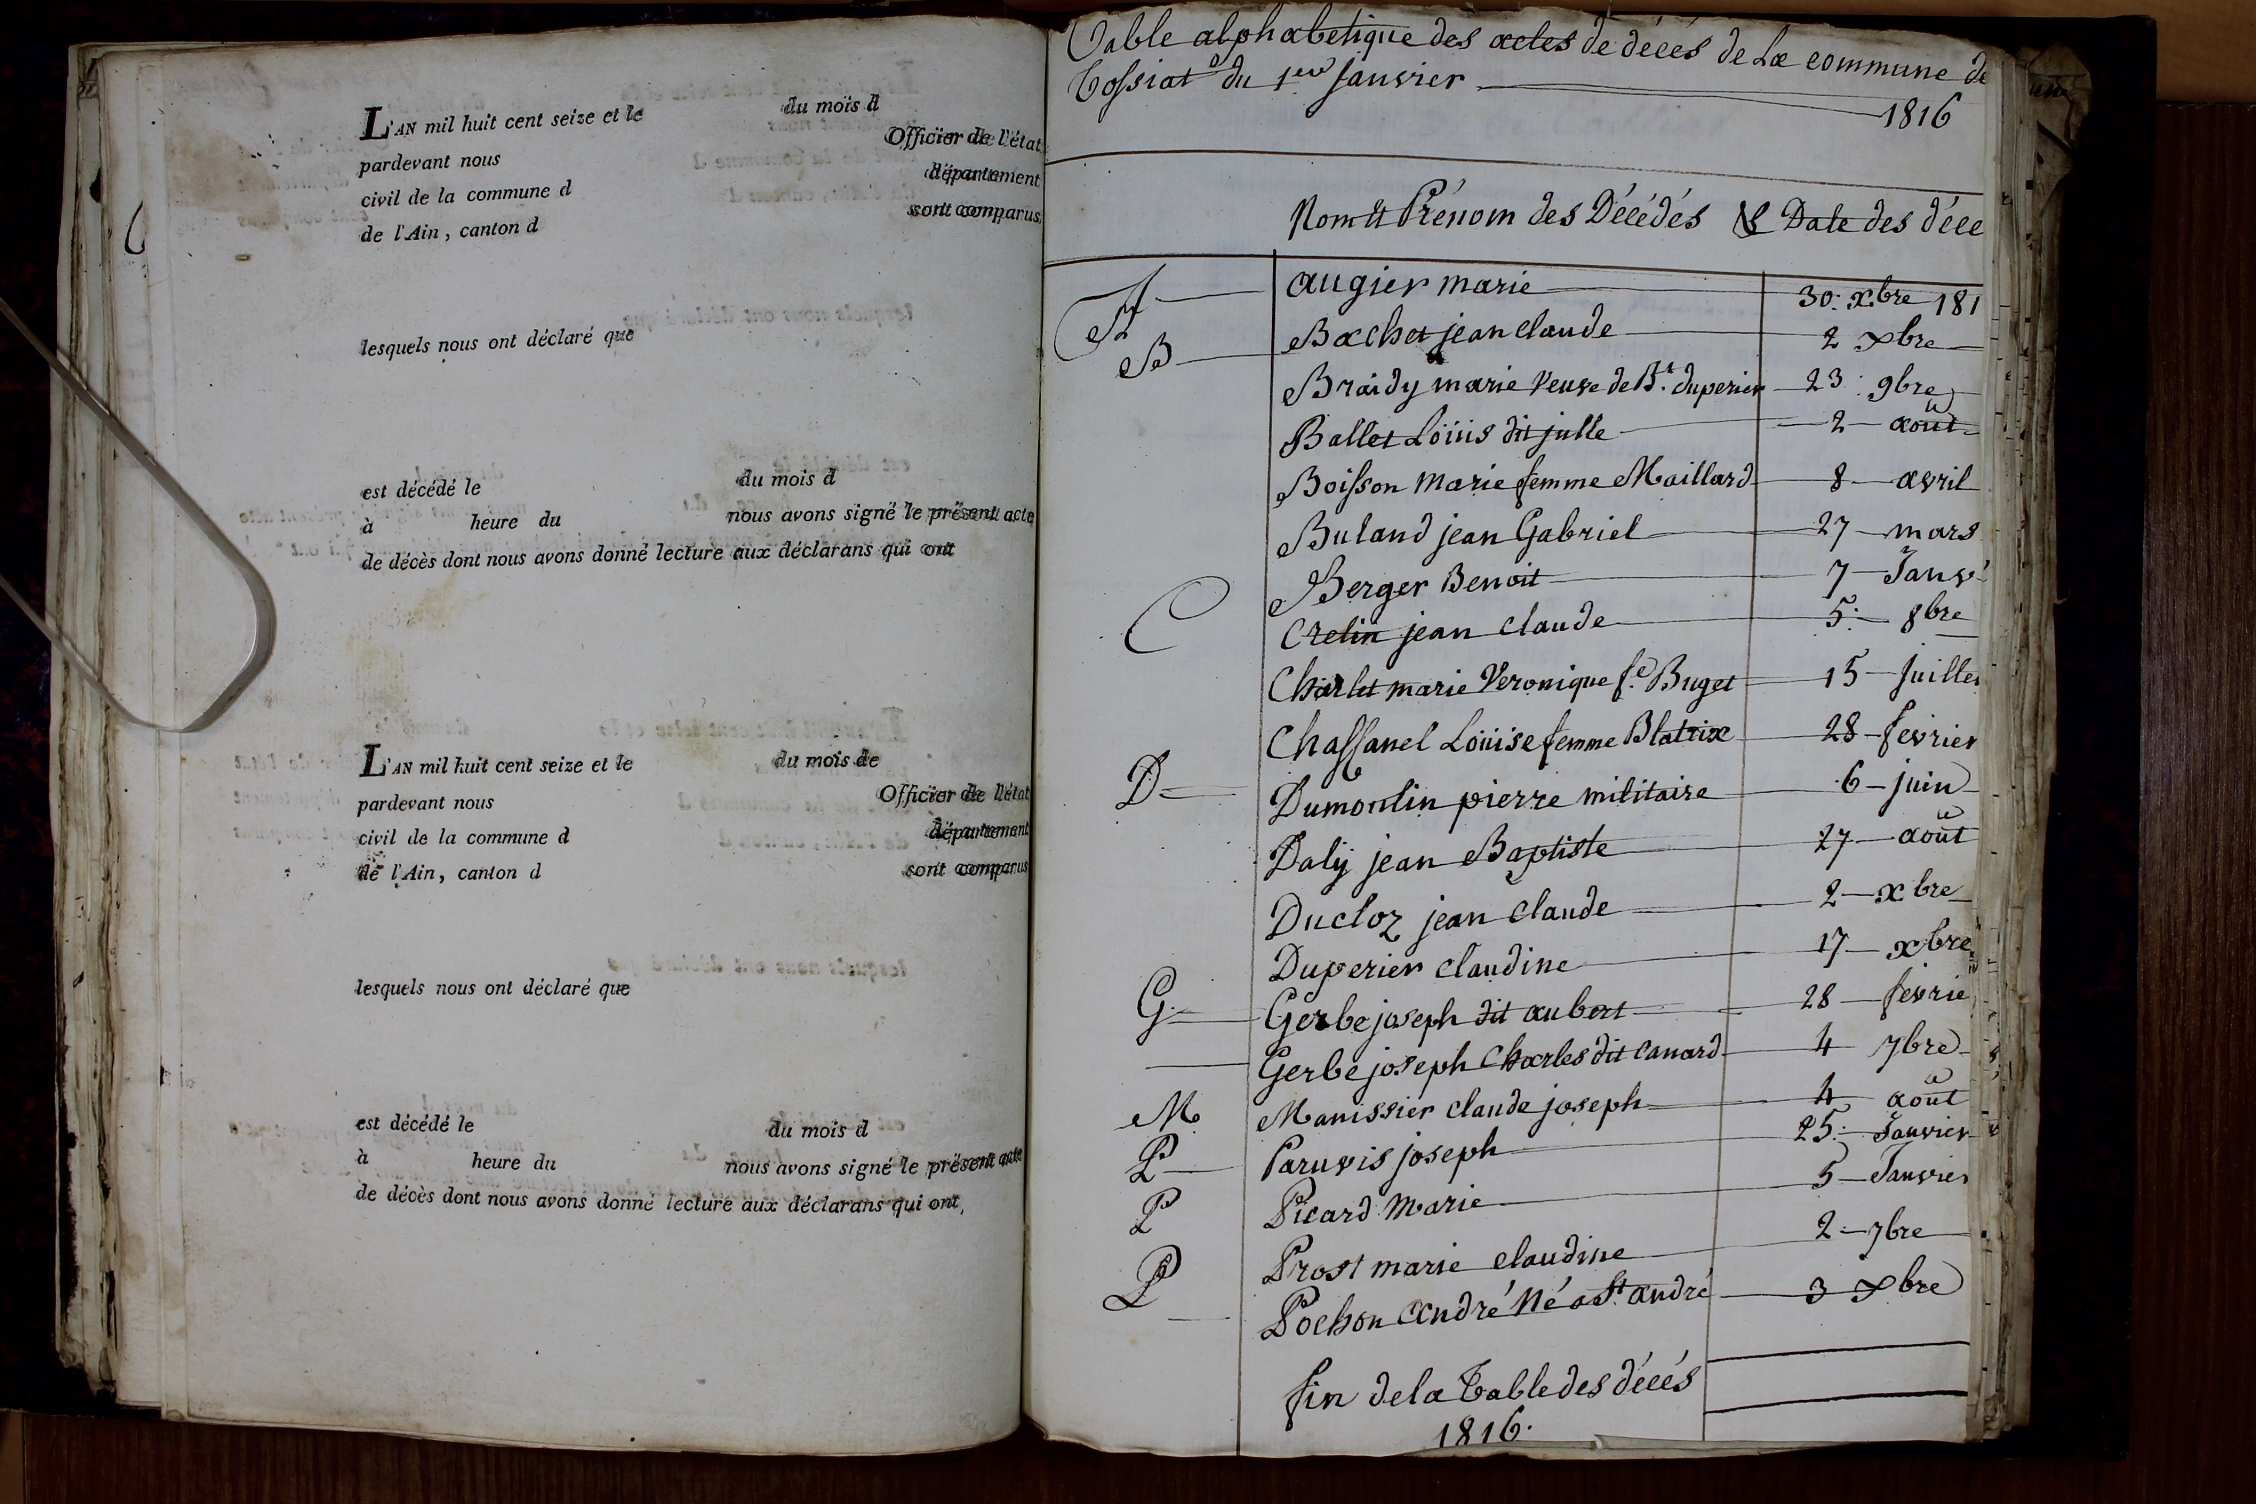 L'AN mil huit cent seize et le du mois d
pardevant nous Officier de l'état
civil de la commune d département
de l'Ain, canton d sont comparus
lesquels nous ont déclaré que
est décédé le du mois d
à heure du nous avons signé le présent acte
de décès dont nous avons donné lecture aux déclarans qui ont
L'AN mil huit cent seize et le du mois de
pardevant nous Officier de l'état
civil de la commune d département
de l'Ain, canton d sont comparus
lesquels nous ont déclaré que
est décédé le du mois d
à heure du nous avons signé le présent acte
de décès dont nous avons donné lecture aux déclarans qui ont,
Table alphabetique des actes de décés de La commune de
Tossiat du 1er Janvier
1816
Nom et Prénom des Décédés & Date des déce
A augier marie 30. xbre 181
B Bachet jean claude 2 xbre
Braidy marie Veuve de Bt. duperier 23. 9bre
Ballet Loüis dit julle 2 août
Boisson Marie femme Maillard 8 avril
Buland jean Gabriel 27 mars
Berger Benoit 7 Janv.
C Crelin jean claude 5. 8bre
Charlet marie Veronique fe. Buget 15 Juillet
Chassanel Loüise femme Blatrix 28 fevrier
D Dumontin pierre militaire 6 juin
Daly jean Baptiste 27 août
Ducloz jean Claude 2 xbre
Duperier claudine 17 xbre
G Gerbe joseph dit aubert 28 fevrie
Gerbe joseph Charles dit canard 4 7bre
M Manissier claude joseph 4 août
P Paruvis joseph 25. Janvier
P Picard Marie 5 Janvier
Prost marie claudine 2 7bre
P Pochon André Né a St. andré 3 xbre
fin de la Table des décés
1816.